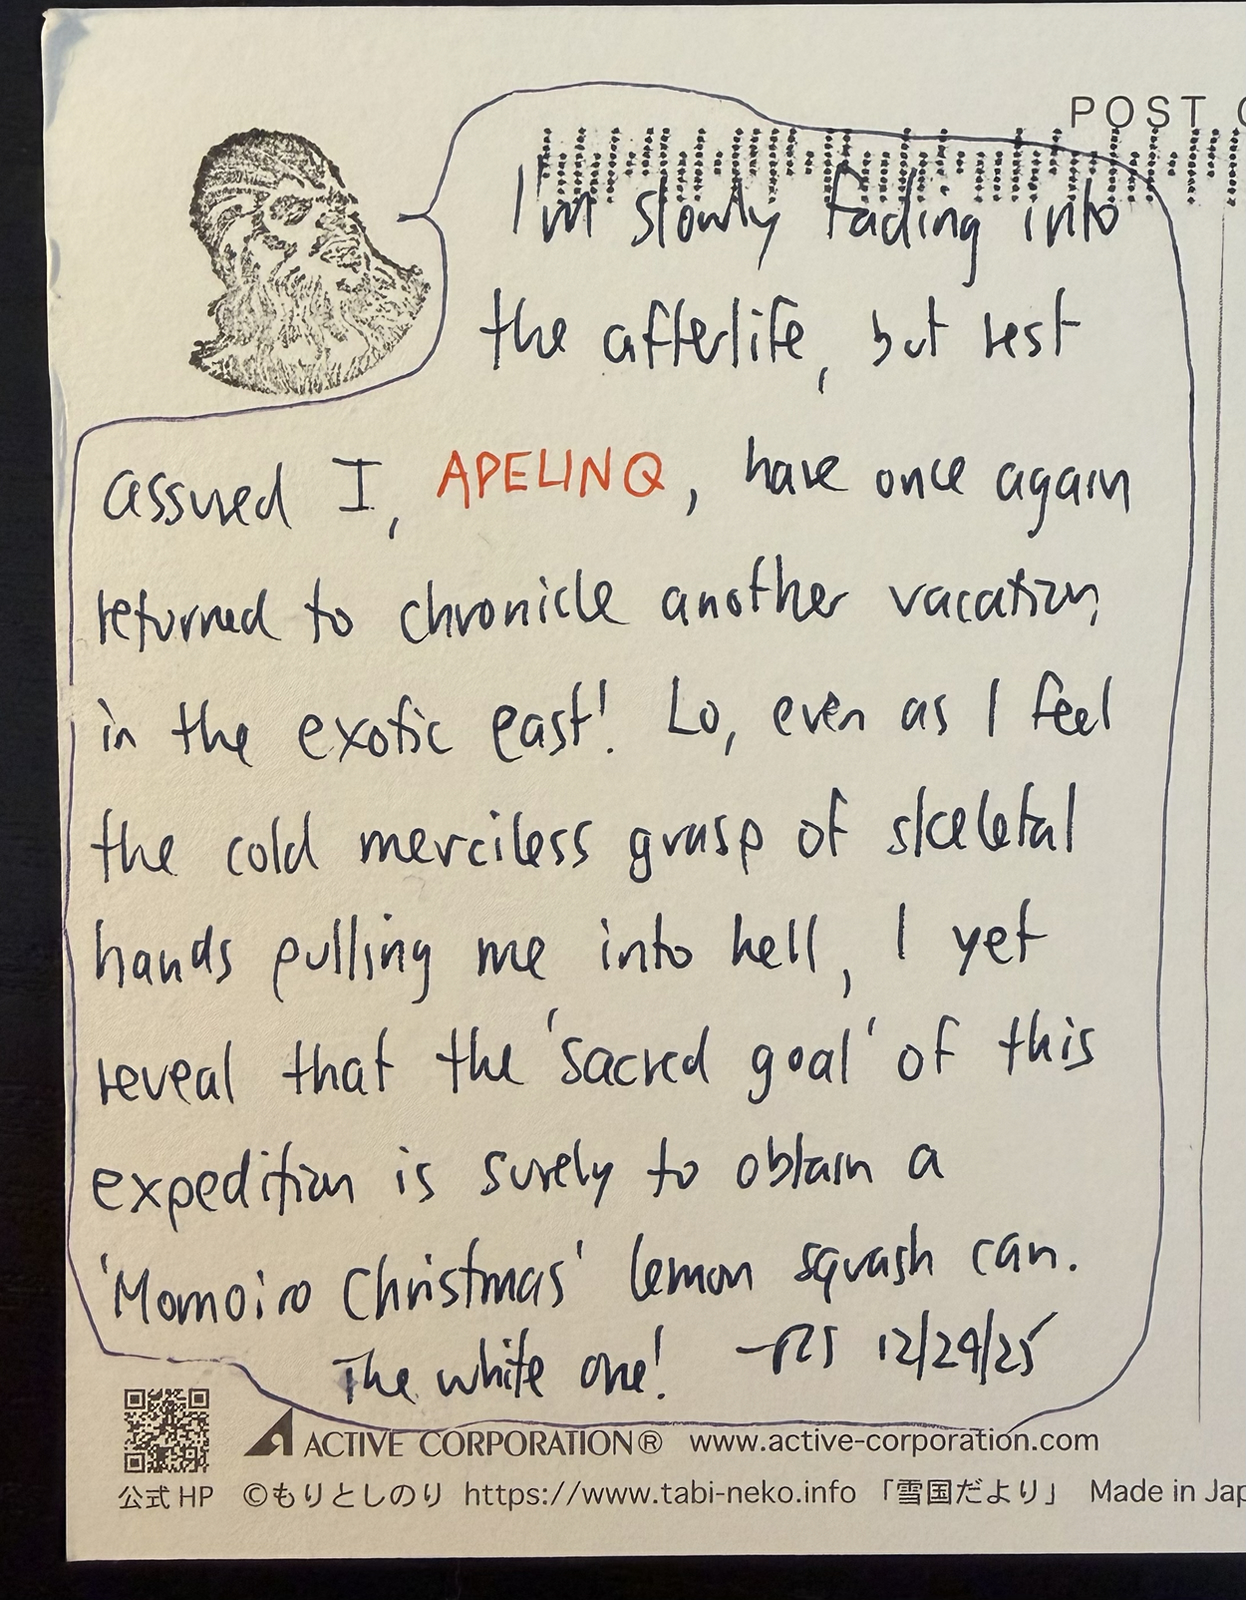 POST
I'm slowly fading into
the afterlife, but rest
assured I, APELINQ, have once again
returned to chronicle another vacation
in the exotic east! Lo, even as I feel
the cold merciless grasp of skeletal
hands pulling me into hell, I yet
reveal that the 'sacred goal' of this
expedition is surely to obtain a
'Momoiro Christmas' lemon squash can.
The white one! 12/24/25
ACTIVE CORPORATION® www.active-corporation.com
公式 HP ©もりとしのり https://www.tabi-neko.info 「雪国だより」 Made in Jap